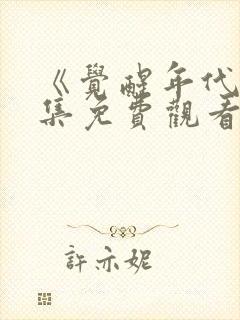 《覺醒年代
集免費觀看
許亦妮